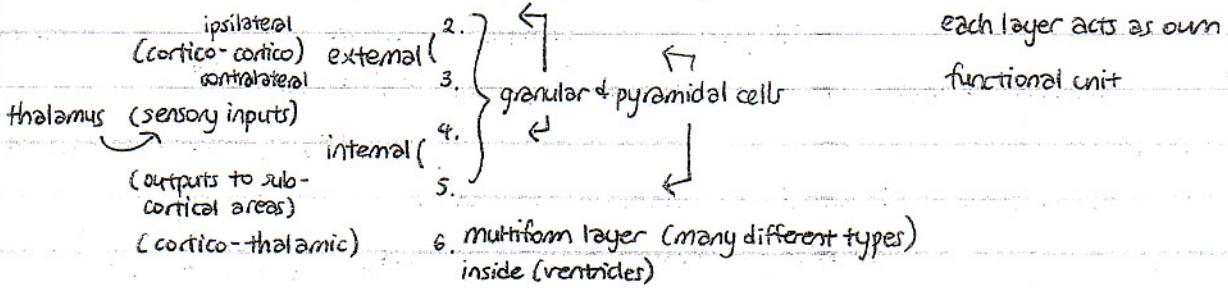 ipsilateral
(cortico-cortico) external ( 2.
contralateral 3.
granular & pyramidal cells
thalamus (sensory inputs)
internal ( 4.
(outputs to sub-
cortical areas) 5.
(cortico-thalamic) 6. multiform layer (many different types)
inside (ventricles)
each layer acts as own
functional unit